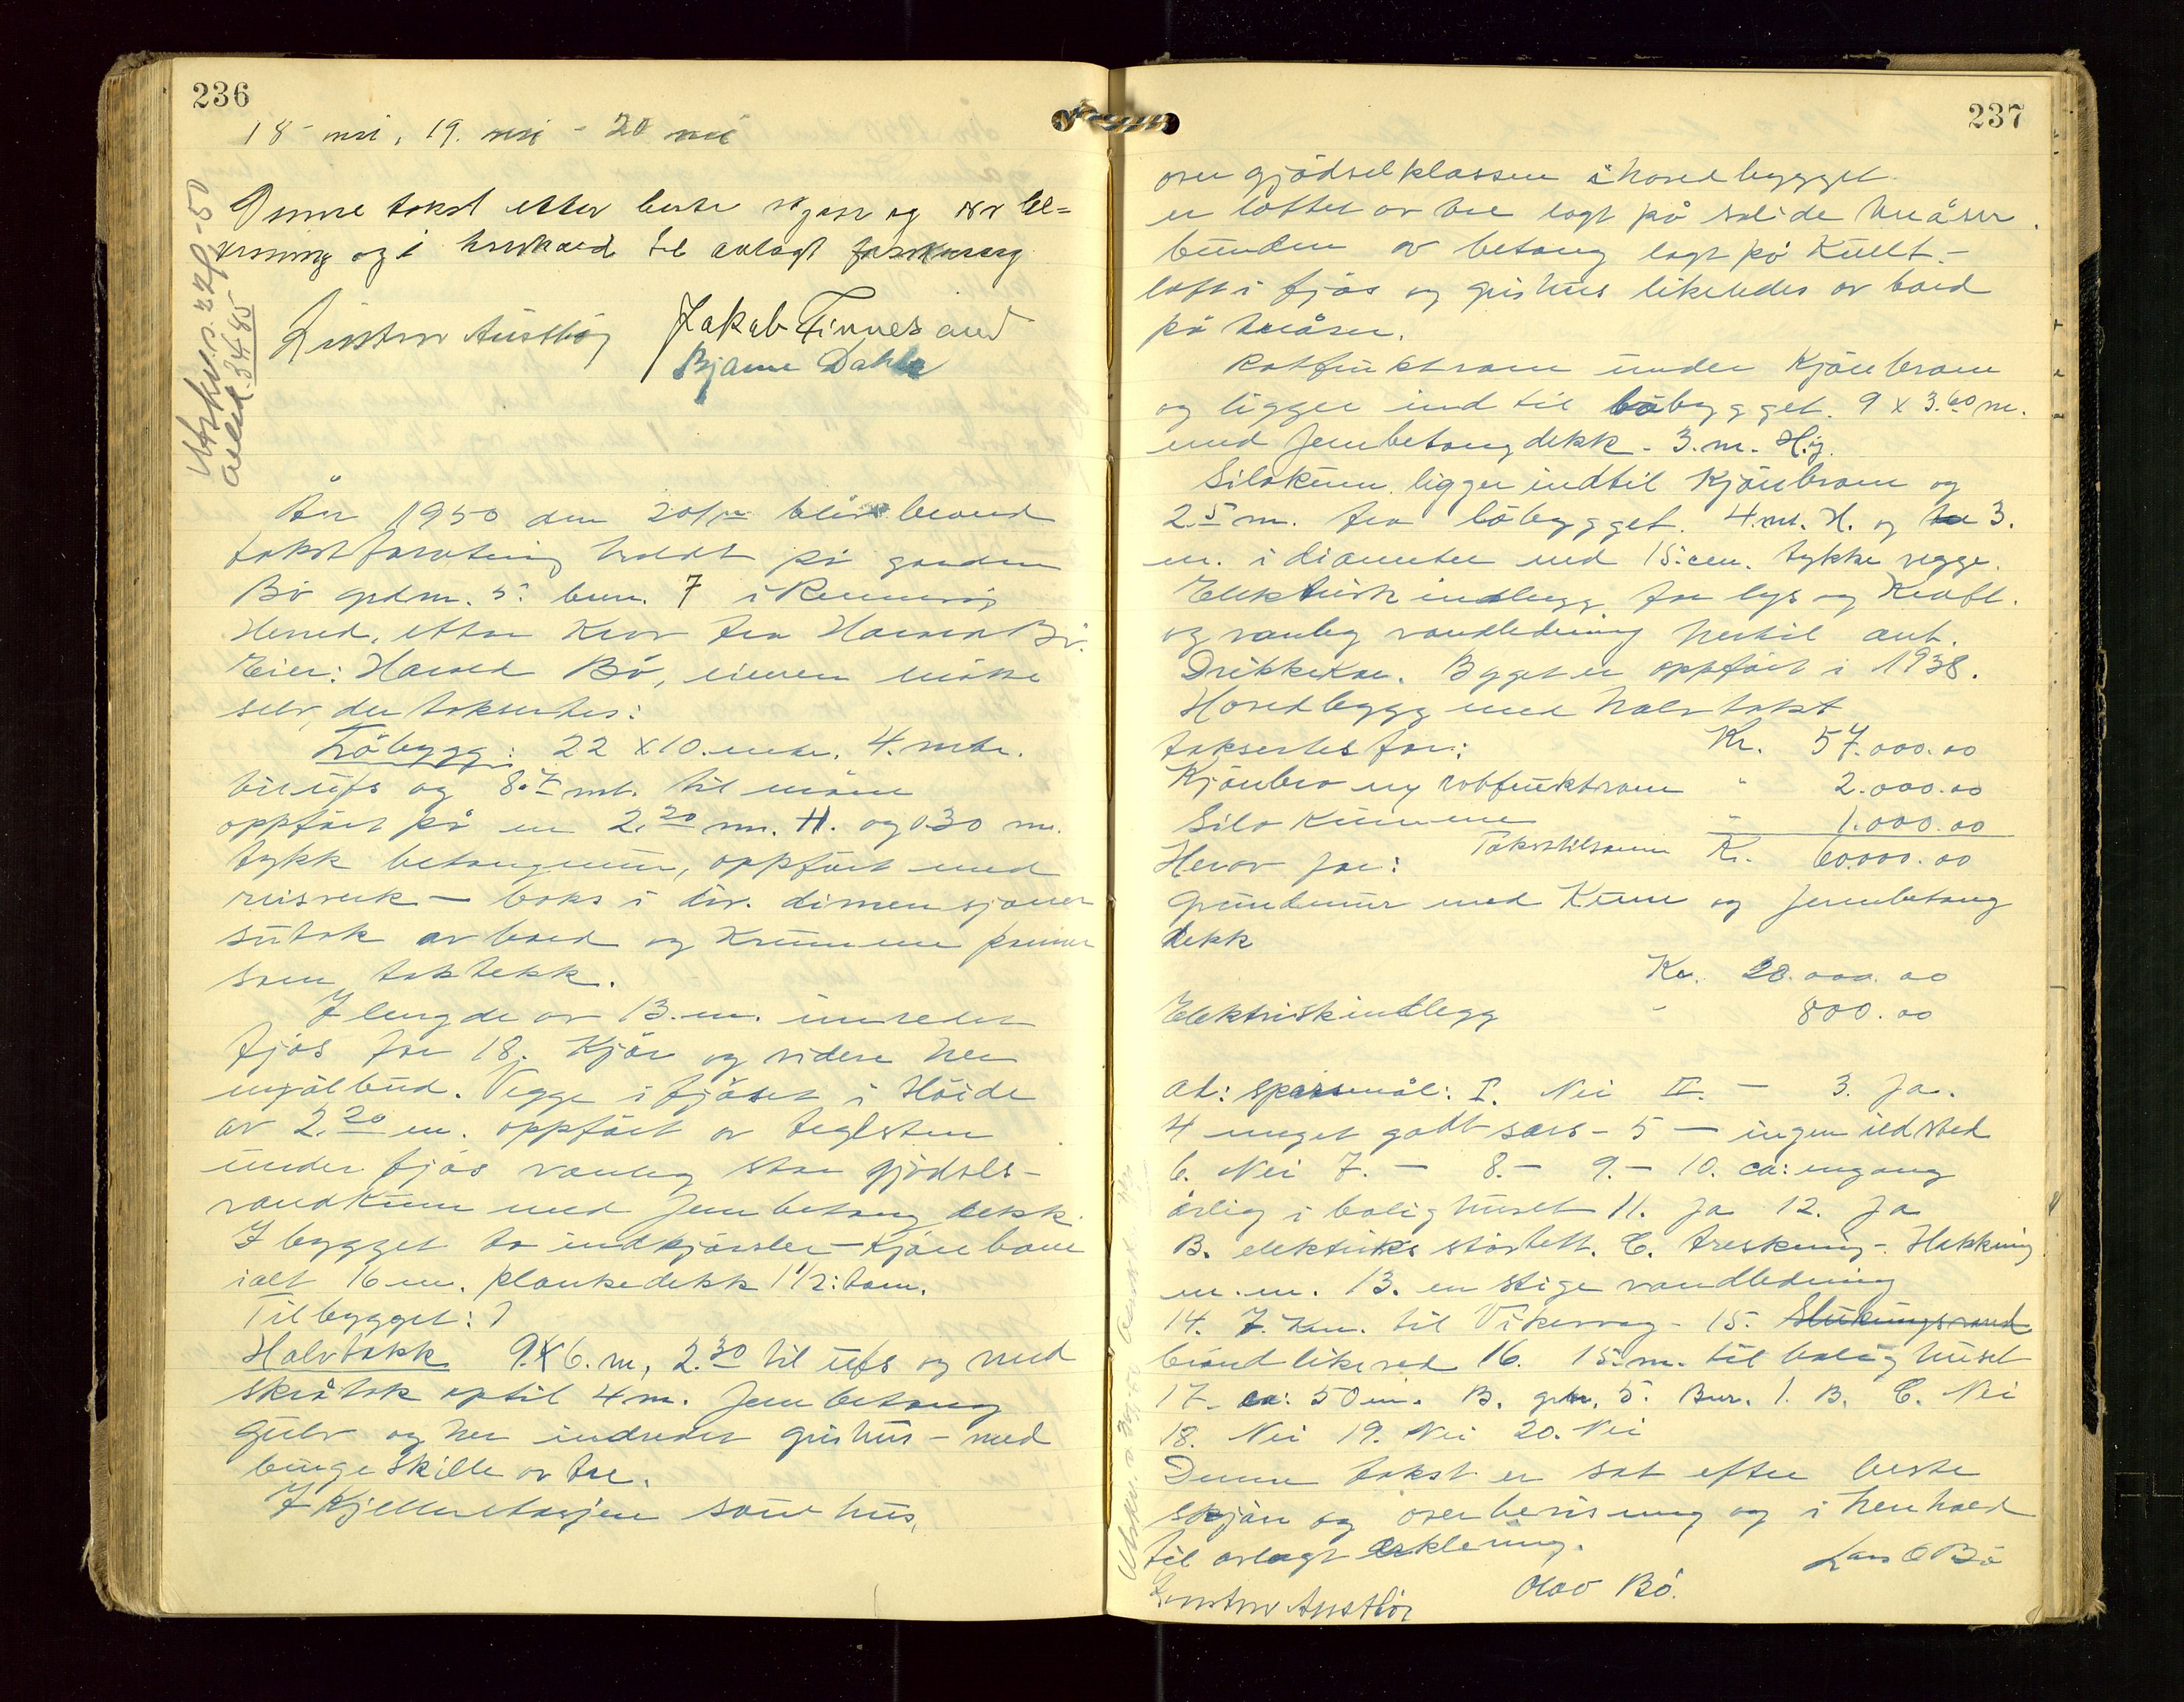 236
18 nei, 19. nei - 20 nei
Denne takst etter beste skjøn og over be=
visning og i henhold til avlagt forsikring
Utskr. 22/9-50
Jakob Finnesand
Bjarne Dahle
År 1950 den 20/ blir brand
takstforretning holdt på garden
Bö grdnr. 5. brnr. 7 i Rennesöy
Herred, etter krav fra Harald Bö.
Eier: Harald Bö, eieren møtte
selv, der taksertes:
Löbygg: 22 x 10. mtr. 4. mtr.
til ufs og 8.7 mt. til möne
oppfört på en 2.20 m. H. og 0.30 m.
tykk betongmur, oppfört med
reisverk – boks i div. dimensjoner
sutak av bord og Krumme panner
som taktekk.
I lengde av 13. m. inredet
fjös for 18. Kjör og videre her
mjölbud. Vegge i fjöset i Höide
av 2.20 m. oppfört av teglsten
under fjös vanleg stor gjödsels-
vandkum med Jernbetong dekk.
I bygget to indkjörsler – Kjörebane
ialt 16 m. plankedekk 1 1/2: tom.
Tilbygget: 1
Halvtakk 9. x 6. m, 2.30 til ufs og med
skråtak optil 4 m. Jernbetong
gulv og her indredet grishus – med
binge skille av tre.
I Kjelleretasjen sauehus,
237
over gjödselklassen i hovedbygget
er loftet av tre lagt på solide treåser.
bunden av betong lagt på Kult. –
loft i fjös og grishus likeledes av bord
på treåser.
Rotfruktrom under Kjörebroen
og ligger ind til löbygget. 9 x 3.60 m.
med Jernbetongdekk. 3. m. Höj.
Silokum ligger indtil Kjörebroen og
2.5 m. fra löbygget. 4. m. H. og 3.
m. i diameter med 15. cm. tykke vegge.
Elektrisk indlegg for lys og Kraft.
og vanleg vandledning hertil aut.
Drikkekar. Bygget er oppfört i 1938.
Hovedbygg med halvtakst
taksertes for: Kr. 57.000.00
Kjörebro og rotfruktrom " 2.000.00
Silo Kummen " 1.000.00
Takstilsamn Kr. 60.000.00
Herav for:
Grundmur med Kum og Jernbetong
dekk
Kr. 20.000.00
Elektriskindlegg " 800.00
ad: spørsmål: I. Nei II. – 3. Ja.
4 meget godt - 5 – ingen ildsted
6. Nei 7. – 8. – 9. – 10. ca: engang
årlig i bolighuset 11. Ja 12. Ja
B. elektrisk C. treskning –. Hakking
m. m. 13. en stige vandledning
14. 7. Km. til Vikevaag – 15. Slukningsvand
brönd like ved 16. 15. m. til bolighuset
17. ca: 50 m. B. grnr. 5. Bnr. 1. B. C. Nei
18. Nei 19. Nei 20. Nei
Denne takst er sat efter beste
skjön og overbevisning og i henhold
til avlagt erklering.
Lars O Bö
Olav Bö.